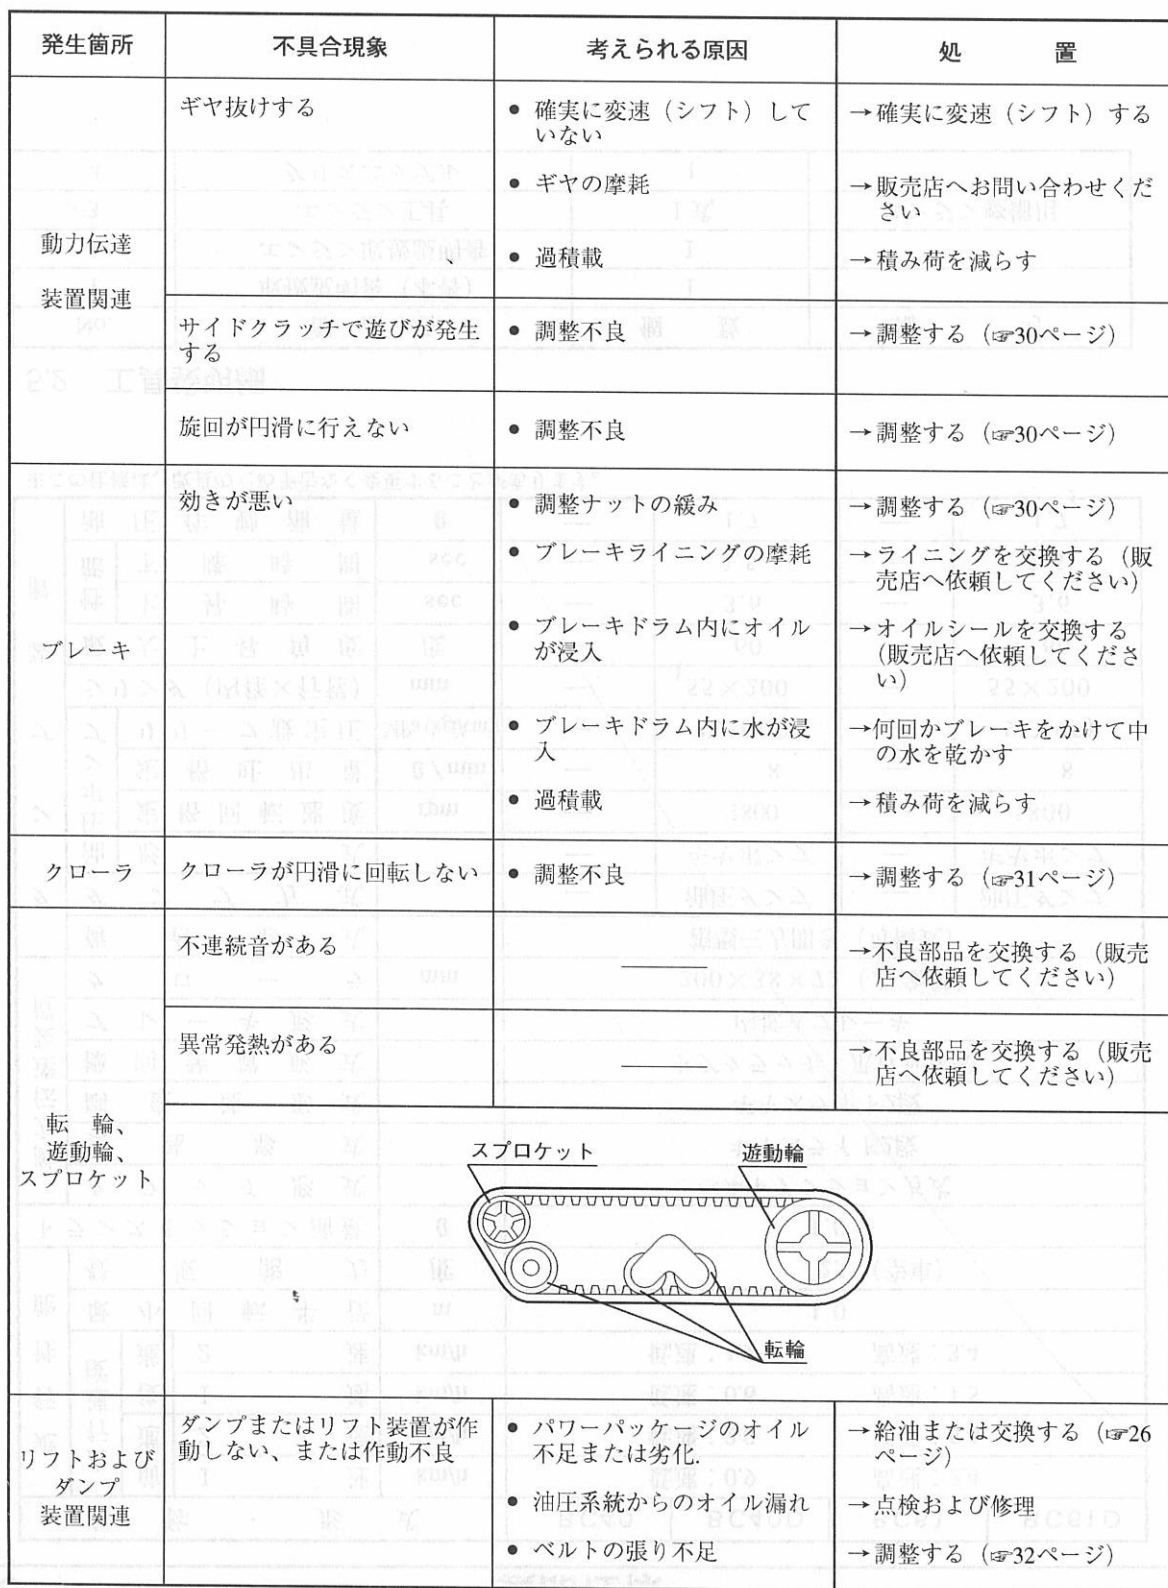 発生箇所 不具合現象 考えられる原因 処 置
動力伝達
装置関連
ギヤ抜けする
● 確実に変速（シフト）して
いない
→確実に変速（シフト）する
● ギヤの摩耗
→販売店へお問い合わせくだ
さい
● 過積載
→積み荷を減らす
サイドクラッチで遊びが発生
する
● 調整不良
→調整する（☞30ページ）
旋回が円滑に行えない
● 調整不良
→調整する（☞30ページ）
ブレーキ
効きが悪い
● 調整ナットの緩み
→調整する（☞30ページ）
● ブレーキライニングの摩耗
→ライニングを交換する（販
売店へ依頼してください）
● ブレーキドラム内にオイル
が浸入
→オイルシールを交換する
（販売店へ依頼してくださ
い）
● ブレーキドラム内に水が浸
入
→何回かブレーキをかけて中
の水を乾かす
● 過積載
→積み荷を減らす
クローラ
クローラが円滑に回転しない
● 調整不良
→調整する（☞31ページ）
転 輪、
遊動輪、
スプロケット
不連続音がある
→不良部品を交換する（販売
店へ依頼してください）
異常発熱がある
→不良部品を交換する（販売
店へ依頼してください）
スプロケット
遊動輪
転輪
リフトおよび
ダンプ
装置関連
ダンプまたはリフト装置が作
動しない、または作動不良
● パワーパッケージのオイル
不足または劣化.
→給油または交換する（☞26
ページ）
● 油圧系統からのオイル漏れ
→点検および修理
● ベルトの張り不足
→調整する（☞32ページ）